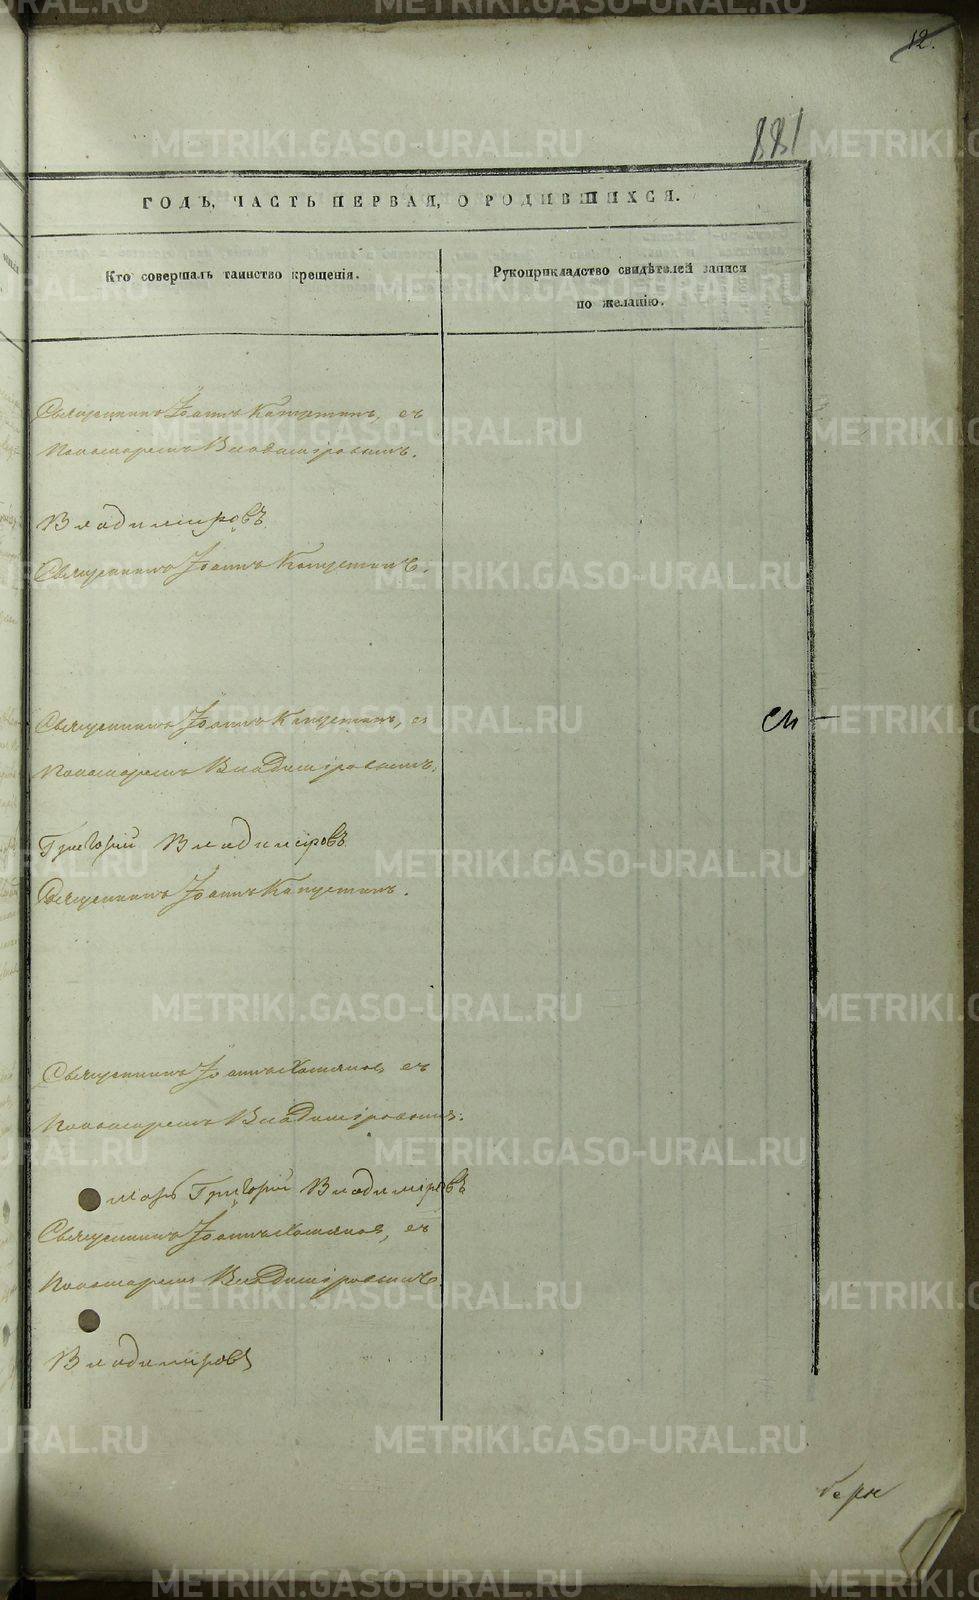 12.
881
ГОДЪ, ЧАСТЬ ПЕРВАЯ, О РОДИВШИХСЯ.
Кто совершалъ таинство крещенія.
Рукоприкладство свидѣтелей записи
по желанію.
Священникъ Іоаннъ Капустинъ, съ
Пономаремъ Владиміровымъ.
Владиміровъ
Священникъ Іоаннъ Капустинъ.
Священникъ Іоаннъ Капустинъ, съ
Пономаремъ Владиміровымъ.
Григорій Владиміровъ
Священникъ Іоаннъ Капустинъ.
Священникъ Іоаннъ съ
Пономаремъ Владиміровымъ.
Григорій Владиміровъ
Священникъ Іоаннъ съ
Пономаремъ Владиміровымъ
Владиміровъ
METRIKI.GASO-URAL.RU